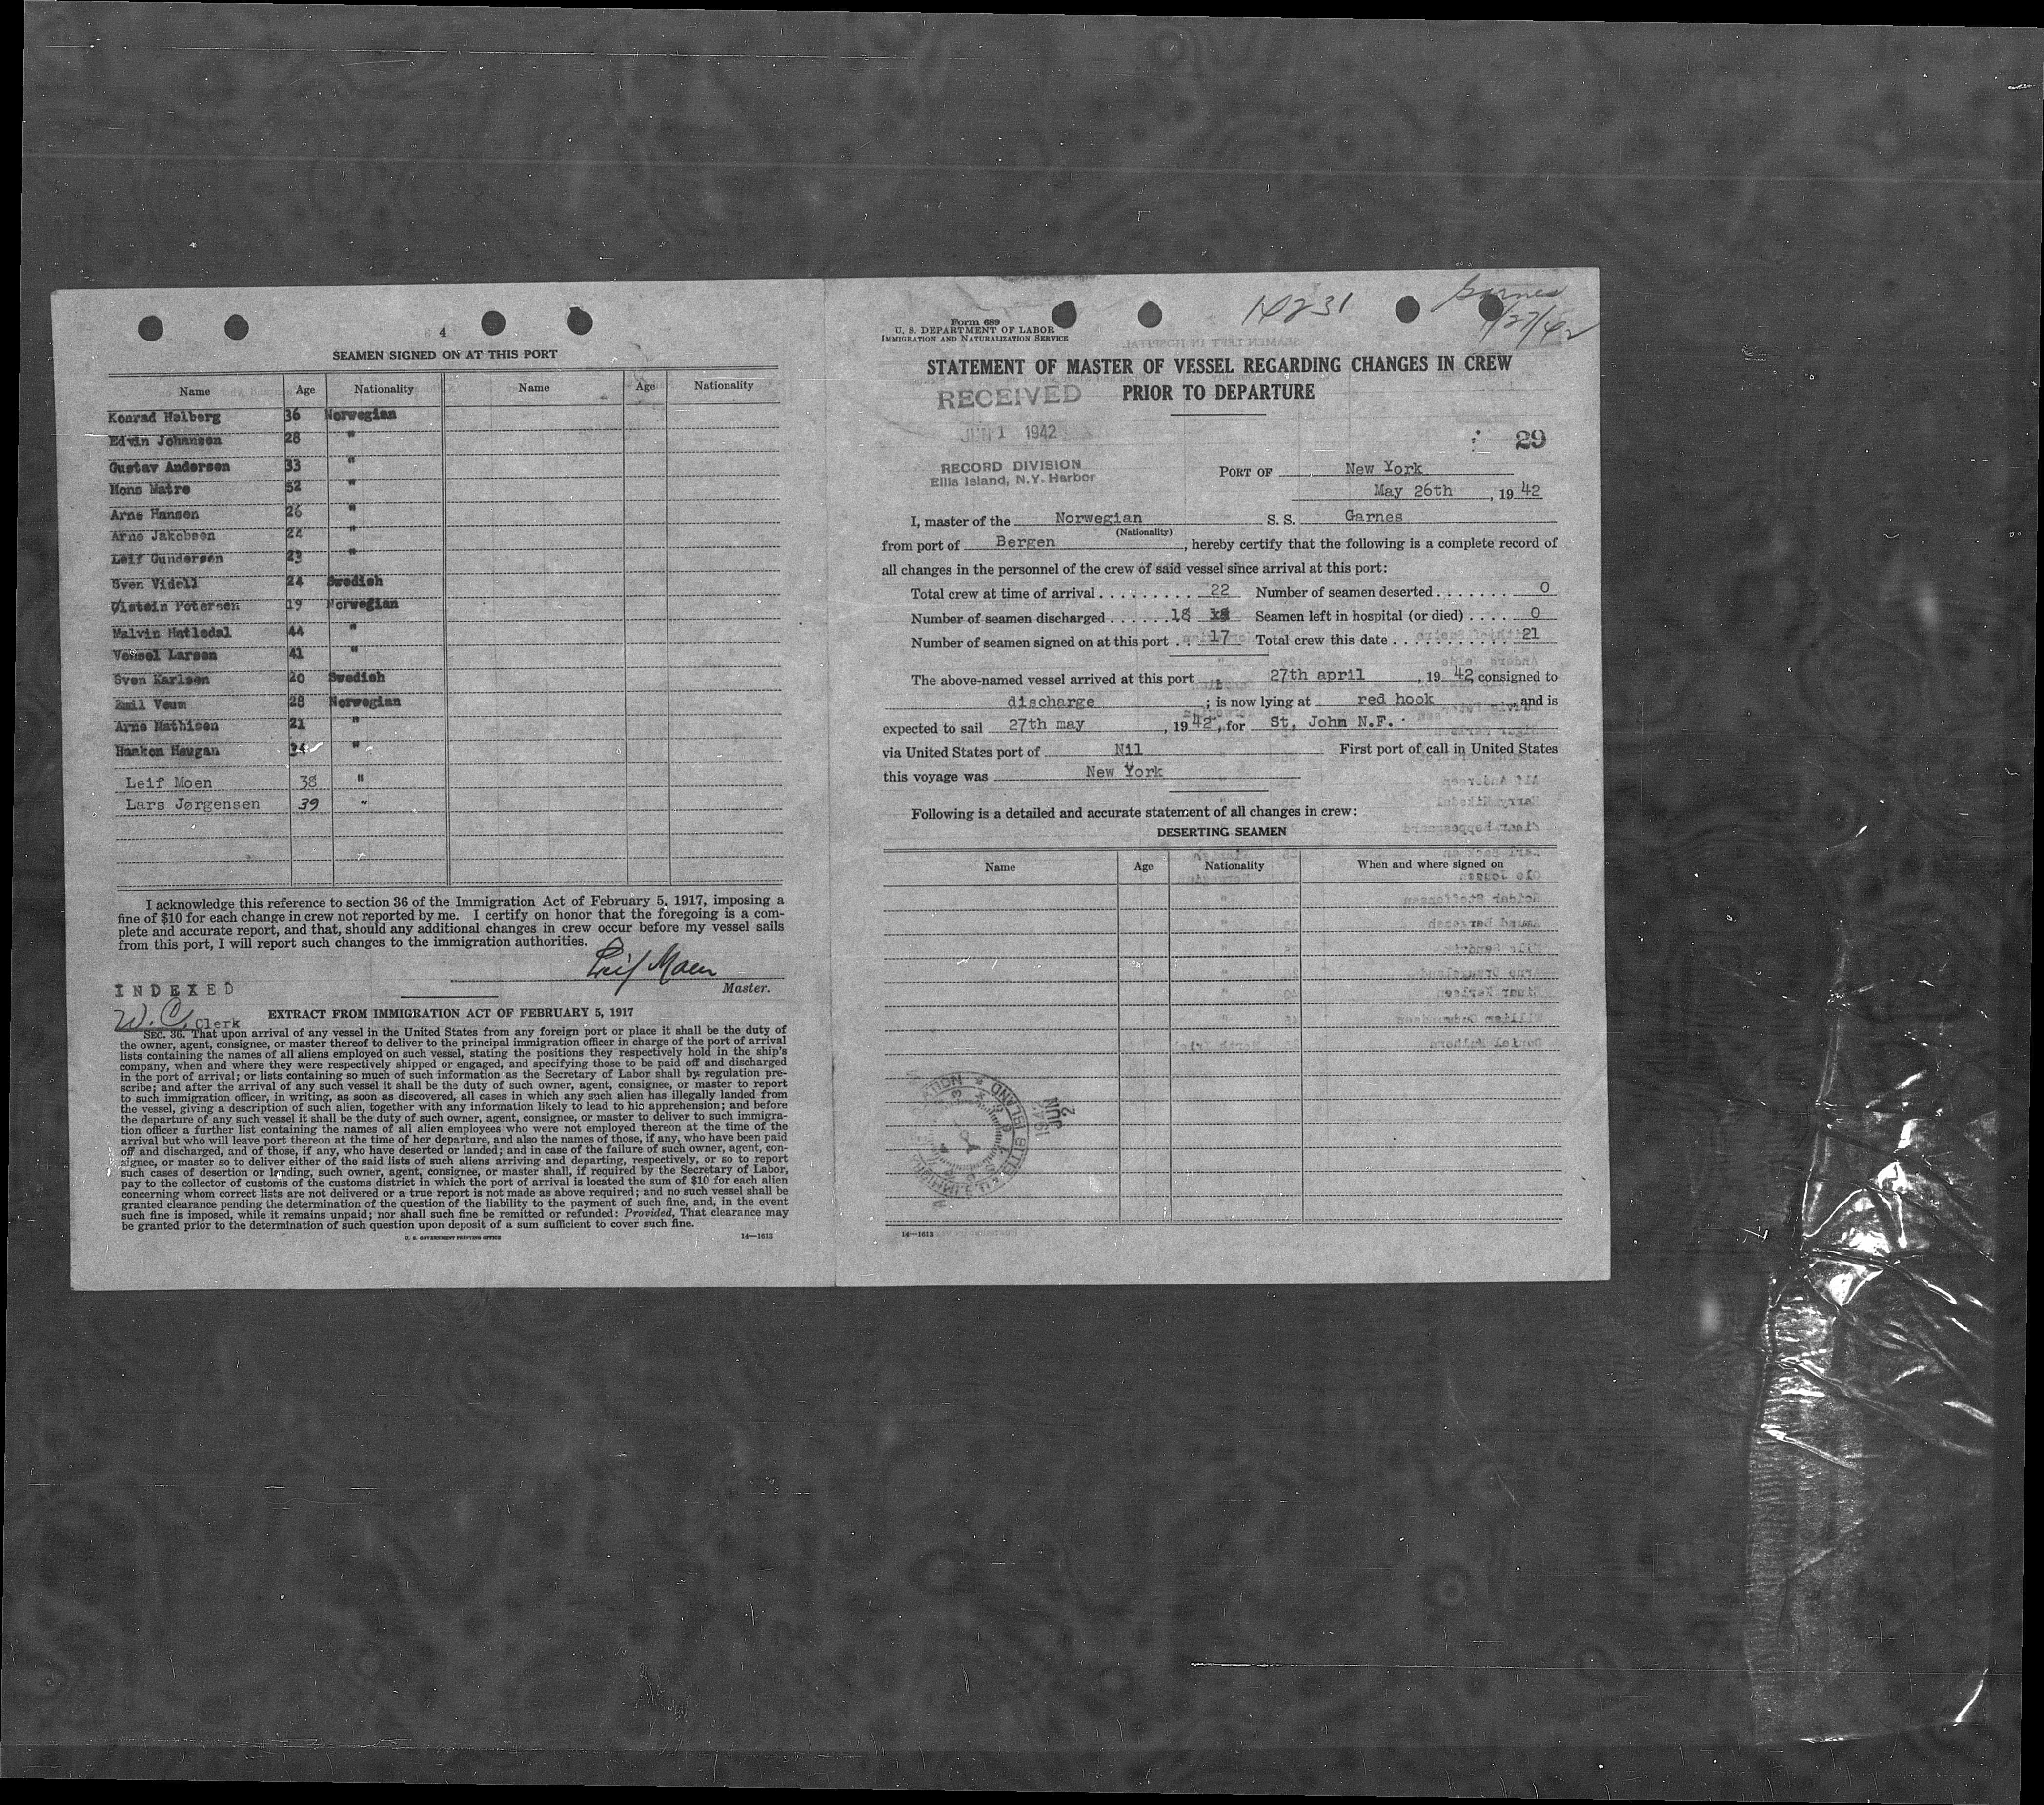 4
SEAMEN SIGNED ON AT THIS PORT
Name Age Nationality Name Age Nationality
Konrad Helberg 36 Norwegian
Edvin Johansen 28 "
Gustav Andersen 33 "
Mons Matre 52 "
Arne Hansen 26 "
Arne Jakobsen 24 "
Leif Gundersen 23 "
Sven Videll 24 Swedish
Øistein Petersen 19 Norwegian
Malvin Hatledal 44 "
Larsen 41 "
Sven Karlsen 20 Swedish
Emil Veum 28 Norwegian
Arne Mathisen 21 "
Haakon Haugan "
Leif Moen 38 "
Lars Jørgensen 39 "
I acknowledge this reference to section 36 of the Immigration Act of February 5, 1917, imposing a
fine of $10 for each change in crew not reported by me. I certify on honor that the foregoing is a com-
plete and accurate report, and that, should any additional changes in crew occur before my vessel sails
from this port, I will report such changes to the immigration authorities.
Leif Moen
Master.
INDEXED
W. C. Clerk
EXTRACT FROM IMMIGRATION ACT OF FEBRUARY 5, 1917
SEC. 36. That upon arrival of any vessel in the United States from any foreign port or place it shall be the duty of
the owner, agent, consignee, or master thereof to deliver to the principal immigration officer in charge of the port of arrival
lists containing the names of all aliens employed on such vessel, stating the positions they respectively hold in the ship's
company, when and where they were respectively shipped or engaged, and specifying those to be paid off and discharged
in the port of arrival; or lists containing so much of such information as the Secretary of Labor shall by regulation pre-
scribe; and after the arrival of any such vessel it shall be the duty of such owner, agent, consignee, or master to report
to such immigration officer, in writing, as soon as discovered, all cases in which any such alien has illegally landed from
the vessel, giving a description of such alien, together with any information likely to lead to his apprehension; and before
the departure of any such vessel it shall be the duty of such owner, agent, consignee, or master to deliver to such immigra-
tion officer a further list containing the names of all alien employees who were not employed thereon at the time of the
arrival but who will leave port thereon at the time of her departure, and also the names of those, if any, who have been paid
off and discharged, and of those, if any, who have deserted or landed; and in case of the failure of such owner, agent, con-
signee, or master so to deliver either of the said lists of such aliens arriving and departing, respectively, or so to report
such cases of desertion or landing, such owner, agent, consignee, or master shall, if required by the Secretary of Labor,
pay to the collector of customs of the customs district in which the port of arrival is located the sum of $10 for each alien
concerning whom correct lists are not delivered or a true report is not made as above required; and no such vessel shall be
granted clearance pending the determination of the question of the liability to the payment of such fine, and, in the event
such fine is imposed, while it remains unpaid; nor shall such fine be remitted or refunded: Provided, That clearance may
be granted prior to the determination of such question upon deposit of a sum sufficient to cover such fine.
U. S. GOVERNMENT PRINTING OFFICE 14—1613
Form 689
U. S. DEPARTMENT OF LABOR
IMMIGRATION AND NATURALIZATION SERVICE
14231
Garnes
4/27/42
STATEMENT OF MASTER OF VESSEL REGARDING CHANGES IN CREW
PRIOR TO DEPARTURE
RECEIVED
JUN 1 1942
RECORD DIVISION
Ellis Island, N.Y. Harbor
29
PORT OF New York
May 26th, 1942
I, master of the Norwegian S. S. Garnes
(Nationality)
from port of Bergen, hereby certify that the following is a complete record of
all changes in the personnel of the crew of said vessel since arrival at this port:
Total crew at time of arrival . . . . . . . . . 22 Number of seamen deserted . . . . . . . 0
Number of seamen discharged . . . . . . 18 Seamen left in hospital (or died) . . . . 0
Number of seamen signed on at this port . . 17 Total crew this date . . . . . . . . . . . . 21
The above-named vessel arrived at this port 27th april, 1942, consigned to
discharge; is now lying at red hook, and is
expected to sail 27th may, 1942, for St, John N.F.
via United States port of Nil First port of call in United States
this voyage was New York
Following is a detailed and accurate statement of all changes in crew:
DESERTING SEAMEN
Name Age Nationality When and where signed on
JUN 2
14—1613